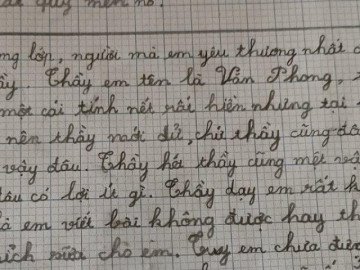 quý mến nó.
ng lớp, người mà em yêu thương nhất
ầy. Thầy em tên là Văn Phong,
một cái tính nết rất hiền nhưng tại
nên thầy mới dữ, chứ thầy cũng đâ
vậy đâu. Thầy hét thầy cũng mệt mà
đâu có lợi ít gì. Thầy dạy em rất h
à em viết bài không được hay th
ích nữa cho em. Tuy em chưa đượ